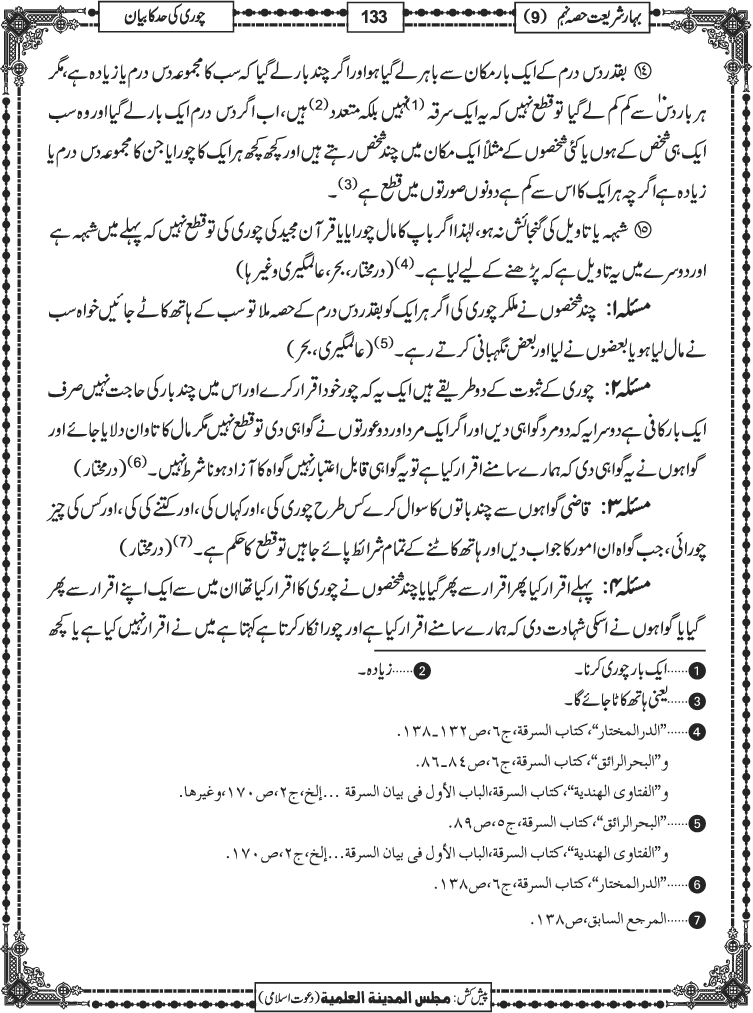 بہار شریعت حصہ نہم (9)
133
چوری کی حد کا بیان
⑭ بقدر دس درم کے ایک بار مکان سے باہر لے گیا ہو اور اگر چند بار لے گیا کہ سب کا مجموعہ دس درم یا زیادہ ہے، مگر
ہر بار دس سے کم کم لے گیا تو قطع نہیں کہ یہ ایک سرقہ (1) نہیں بلکہ متعدد (2) ہیں، اب اگر دس درم ایک بار لے گیا اور وہ سب
ایک ہی شخص کے ہوں یا کئی شخصوں کے مثلاً ایک مکان میں چند شخص رہتے ہیں اور کچھ کچھ ہر ایک کا چورایا جن کا مجموعہ دس درم یا
زیادہ ہے اگرچہ ہر ایک کا اس سے کم ہے دونوں صورتوں میں قطع ہے (3)۔
⑮ شبہہ یا تاویل کی گنجائش نہ ہو، لہٰذا اگر باپ کا مال چورایا یا قرآن مجید کی چوری کی تو قطع نہیں کہ پہلے میں شبہہ ہے
اور دوسرے میں یہ تاویل ہے کہ پڑھنے کے لیے لیا ہے۔(4) (درمختار، بحر، عالمگیری وغیرہا)
مسئلہ ۱: چند شخصوں نے ملکر چوری کی اگر ہر ایک کو بقدر دس درم کے حصہ ملا تو سب کے ہاتھ کاٹے جائیں خواہ سب
نے مال لیا ہو یا بعضوں نے لیا اور بعض نگہبانی کرتے رہے۔(5) (عالمگیری، بحر)
مسئلہ ۲: چوری کے ثبوت کے دو طریقے ہیں ایک یہ کہ چور خود اقرار کرے اور اس میں چند بار کی حاجت نہیں صرف
ایک بار کافی ہے دوسرا یہ کہ دو مرد گواہی دیں اور اگر ایک مرد اور دو عورتوں نے گواہی دی تو قطع نہیں مگر مال کا تاوان دلایا جائے اور
گواہوں نے یہ گواہی دی کہ ہمارے سامنے اقرار کیا ہے تو یہ گواہی قابل اعتبار نہیں گواہ کا آزاد ہونا شرط نہیں۔(6) (درمختار)
مسئلہ ۳: قاضی گواہوں سے چند باتوں کا سوال کرے کس طرح چوری کی، اور کہاں کی، اور کتنے کی کی، اور کس کی چیز
چورائی، جب گواہ ان امور کا جواب دیں اور ہاتھ کاٹنے کے تمام شرائط پائے جائیں تو قطع کا حکم ہے۔(7) (درمختار)
مسئلہ ۴: پہلے اقرار کیا پھر اقرار سے پھر گیا یا چند شخصوں نے چوری کا اقرار کیا تھا ان میں سے ایک اپنے اقرار سے پھر
گیا یا گواہوں نے اسکی شہادت دی کہ ہمارے سامنے اقرار کیا ہے اور چور انکار کرتا ہے کہتا ہے میں نے اقرار نہیں کیا ہے یا کچھ
❶......ایک بار چوری کرنا۔ ❷......زیادہ۔
❸......یعنی ہاتھ کاٹا جائے گا۔
❹......”الدرالمختار“، کتاب السرقة، ج٦، ص۱۳۲ـ۱۳۸.
و”البحرالرائق“، کتاب السرقة، ج٦، ص٨٤ـ٨٦.
و”الفتاوی الهندیة“، کتاب السرقة، الباب الأول فی بیان السرقة ...إلخ، ج۲، ص۱۷۰، وغیرها.
❺......”البحرالرائق“، کتاب السرقة، ج٥، ص۸۹.
و”الفتاوی الهندیة“، کتاب السرقة، الباب الأول فی بیان السرقة...إلخ، ج۲، ص۱۷۰.
❻......”الدرالمختار“، کتاب السرقة، ج٦، ص۱۳۸.
❼......المرجع السابق، ص۱۳۸.
پیش کش: مجلس المدینة العلمیة (دعوت اسلامی)